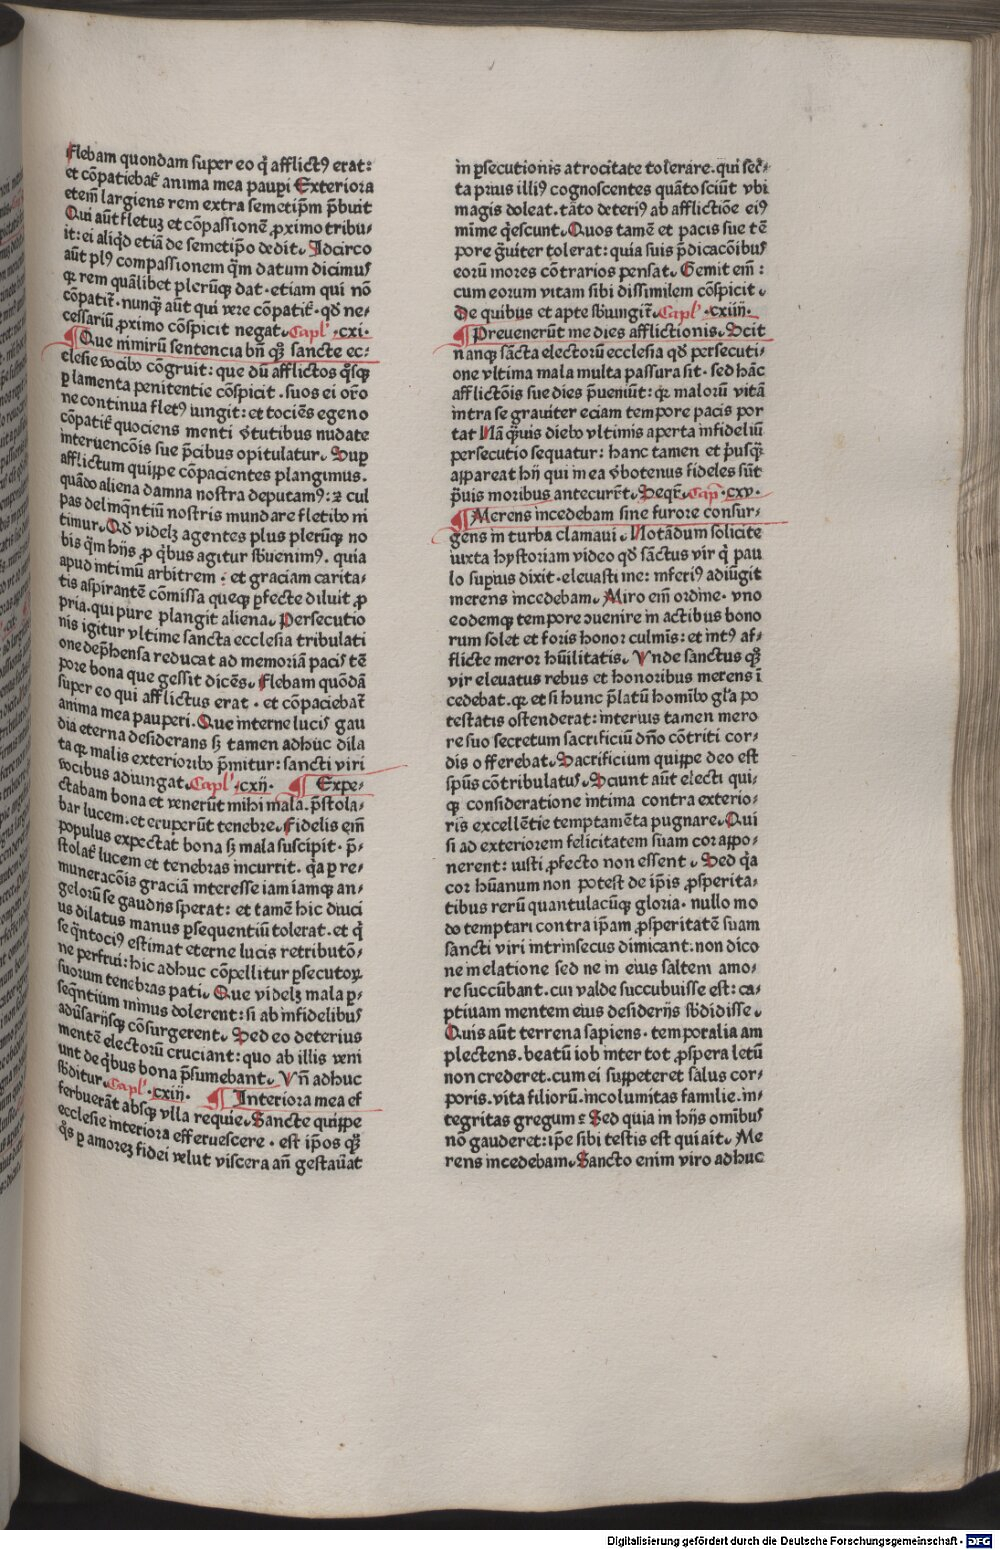 Flebam quondam super eo q̄ afflictꝰ erat:
et cōpatiebat̄ anima mea paup̄i Exteriora
etem̄ largiens rem extra semetip̄m p̄buit
Qui aūt fletuȝ et cōpassionē ꝓximo tribu-
it: ei aliq̄d etiā de semetip̄o dedit. Idcirco
aūt plꝰ compassionem q̄m datum dicimus
qꝛ rem quālibet plerūqꝫ dat. etiam qui nō
cōpatit̄. nunqꝫ aūt qui vere cōpatit̄. qd̄ ne-
cessariū ꝓximo cōspicit negat. Capl' .cxi.
¶ Que nimirū sentencia bn̄ qꝫ sancte ec:
clesie vocibꝰ cōgruit: que dū afflictos q̄sqꝫ
ꝑ lamenta penitentie cōspicit. suos ei or̄o
ne continua fletꝰ iungit: et tociēs egeno
cōpatit̄ quociens menti v̄tutibus nudate
interuencōis sue p̄cibus opitulatur. Sup
afflictum quippe cōpacientes plangimus.
quādo aliena damna nostra deputamꝰ: ⁊ cul
pas delinq̄ntiū nostris mundare fletibꝰ ni
timur. Qd̄ videlȝ agentes plus plerūqꝫ no
bis q̄m hijs ꝓ q̄bus agitur sb̄uenimꝰ. quia
apud intimū arbitrem : et graciam carita-
tis aspirantē cōmissa queqꝫ ꝑfecte diluit ꝓ
pria. qui pure plangit aliena. Persecutio
nis igitur vltime sancta ecclesia tribulati
one dep̄hensa reducat ad memoriā pacis tē
pore bona que gessit dicēs. Flebam quōdā
super eo qui afflictus erat. et cōpaciebat̄
anima mea pauperi. Que interne lucis gau
dia eterna desiderans sȝ tamen adhuc dila
ta qꝛ malis exterioribꝰ p̄mitur: sancti viri
vocibus adiungat. Capl' .cxij. ¶ Expe-
ctabam bona et venerūt mihi mala. p̄stola-
bar lucem. et eruperūt tenebre. Fidelis em̄
populus expectat bona sȝ mala suscipit. p̄-
stolat̄ lucem et tenebras incurrit. q̄a ꝑ re-
muneracōis graciā interesse iam iamqꝫ an-
gelorū se gaudijs sperat: et tamē hic diuci
us dilatus manus ꝑsequentiū tolerat. et q̄
se q̄ntociꝰ estimat eterne lucis retributō-
ne perfrui: hic adhuc cōpellitur ꝑsecutoꝝ
suorum tenebras pati. Que videlȝ mala ꝑ-
seq̄ntium minus dolerent: si ab infidelibus
adūsarijsqꝫ cōsurgerent. Sed eo deterius
mentē electorū cruciant: quo ab illis veni
unt de q̄bus bona p̄sumebant. Vn̄ adhuc
sb̄ditur. Capl' .cxiij. ¶ Interiora mea ef
ferbuerāt absqꝫ vlla requie. Sancte quippe
ecclesie interiora efferuescere. est ip̄os qꝫ
q̄s ꝑ amoreȝ fidei velut viscera an̄ gestaūat
in ꝑsecutionis atrocitate tolerare. qui sec̄-
ta prius illiꝰ cognoscentes quāto sciūt vbi
magis doleat. tāto deteriꝰ ab afflictiōe eiꝰ
mīme q̄escunt. Quos tamē et pacis sue tē
pore g̈uiter tolerat: quia suis p̄dicacōibus
eorū mores cōtrarios pensat. Gemit em̄ :
cum eorum vitam sibi dissimilem cōspicit.
De quibus et apte sb̄iungit̄. Capl' .cxiiij.
¶ Preuenerūt me dies afflictionis. Scit
nanqꝫ sācta electorū ecclesia qd̄ persecuti-
one vltima mala multa passura sit. sed hāc
afflictōis sue dies p̄ueniūt: qꝛ malorū vitā
intra se grauiter eciam tempore pacis por
tat Nā q̄uis diebꝰ vltimis aperta infideliū
persecutio sequatur: hanc tamen et p̄usqꝫ
appareat hij qui in ea v̄botenus fideles sūt
p̄uis moribus antecurr̄t. Seqr̄. Cap̄ .cxv.
¶ Merens incedebam sine furore consur-
gens in turba clamaui. Notādum solicite
iuxta hystoriam video qd̄ sāctus vir q̄ pau
lo superius dixit. eleuasti me: inferiꝰ adiūgit
merens incedebam. Miro em̄ ordine. vno
eodemqꝫ tempore ↄuenire in actibus bono
rum solet et foris honor culmīs: et intꝰ af-
flicte meror hūilitatis. Vnde sanctus qꝫ
vir eleuatus rebus et honoribus merens ī
cedebat. qꝛ et si hunc p̄latū homībꝰ gl̄a po
testatis ostenderat: interius tamen mero
re suo secretum sacrificiū dn̄o cōtriti cor-
dis offerebat. Sacrificium quippe deo est
spūs cōtribulatus. Sciunt aūt electi qui-
qꝫ consideratione intima contra exterio-
ris excellētie temptamēta pugnare. Qui
si ad exteriorem felicitatem suam cor appo-
nerent: iusti ꝓfecto non essent . Sed q̄a
cor hūanum non potest de ip̄is ꝓsperita-
tibus rerū quantulacūqꝫ gloria. nullo mo
do temptari contra ip̄am ꝓsperitatē suam
sancti viri intrinsecus dimicant. non dico
ne in elatione sed ne in eius saltem amo-
re succūbant. cui valde succubuisse est: ca-
ptiuam mentem eius desiderijs sb̄didisse.
Quis aūt terrena sapiens. temporalia am
plectens. beatū iob inter tot ꝓspera letū
non crederet. cum ei suppeteret salus cor-
poris. vita filiorū. incolumitas familie. in-
tegritas gregum : Sed quia in hijs omībus
nō gauderet: ip̄e sibi testis est qui ait. Me
rens incedebam. Sancto enim viro adhuc
Digitalisierung gefördert durch die Deutsche Forschungsgemeinschaft - DFG